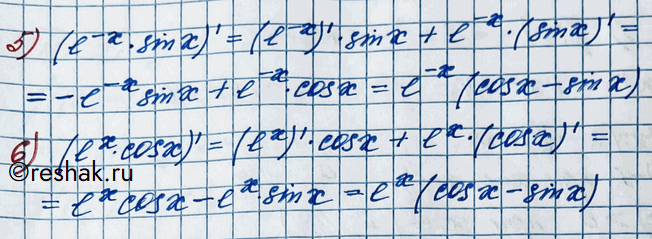 5) (e^{-x}·sinx)' = (e^{-x})'·sinx + e^{-x}·(sinx)' =
= -e^{-x}sinx + e^{-x}·cosx = e^{-x}(cosx-sinx)
6) (e^x·cosx)' = (e^x)'·cosx + e^x·(cosx)' =
©reshak.ru
= e^x cosx - e^x·sinx = e^x(cosx-sinx)